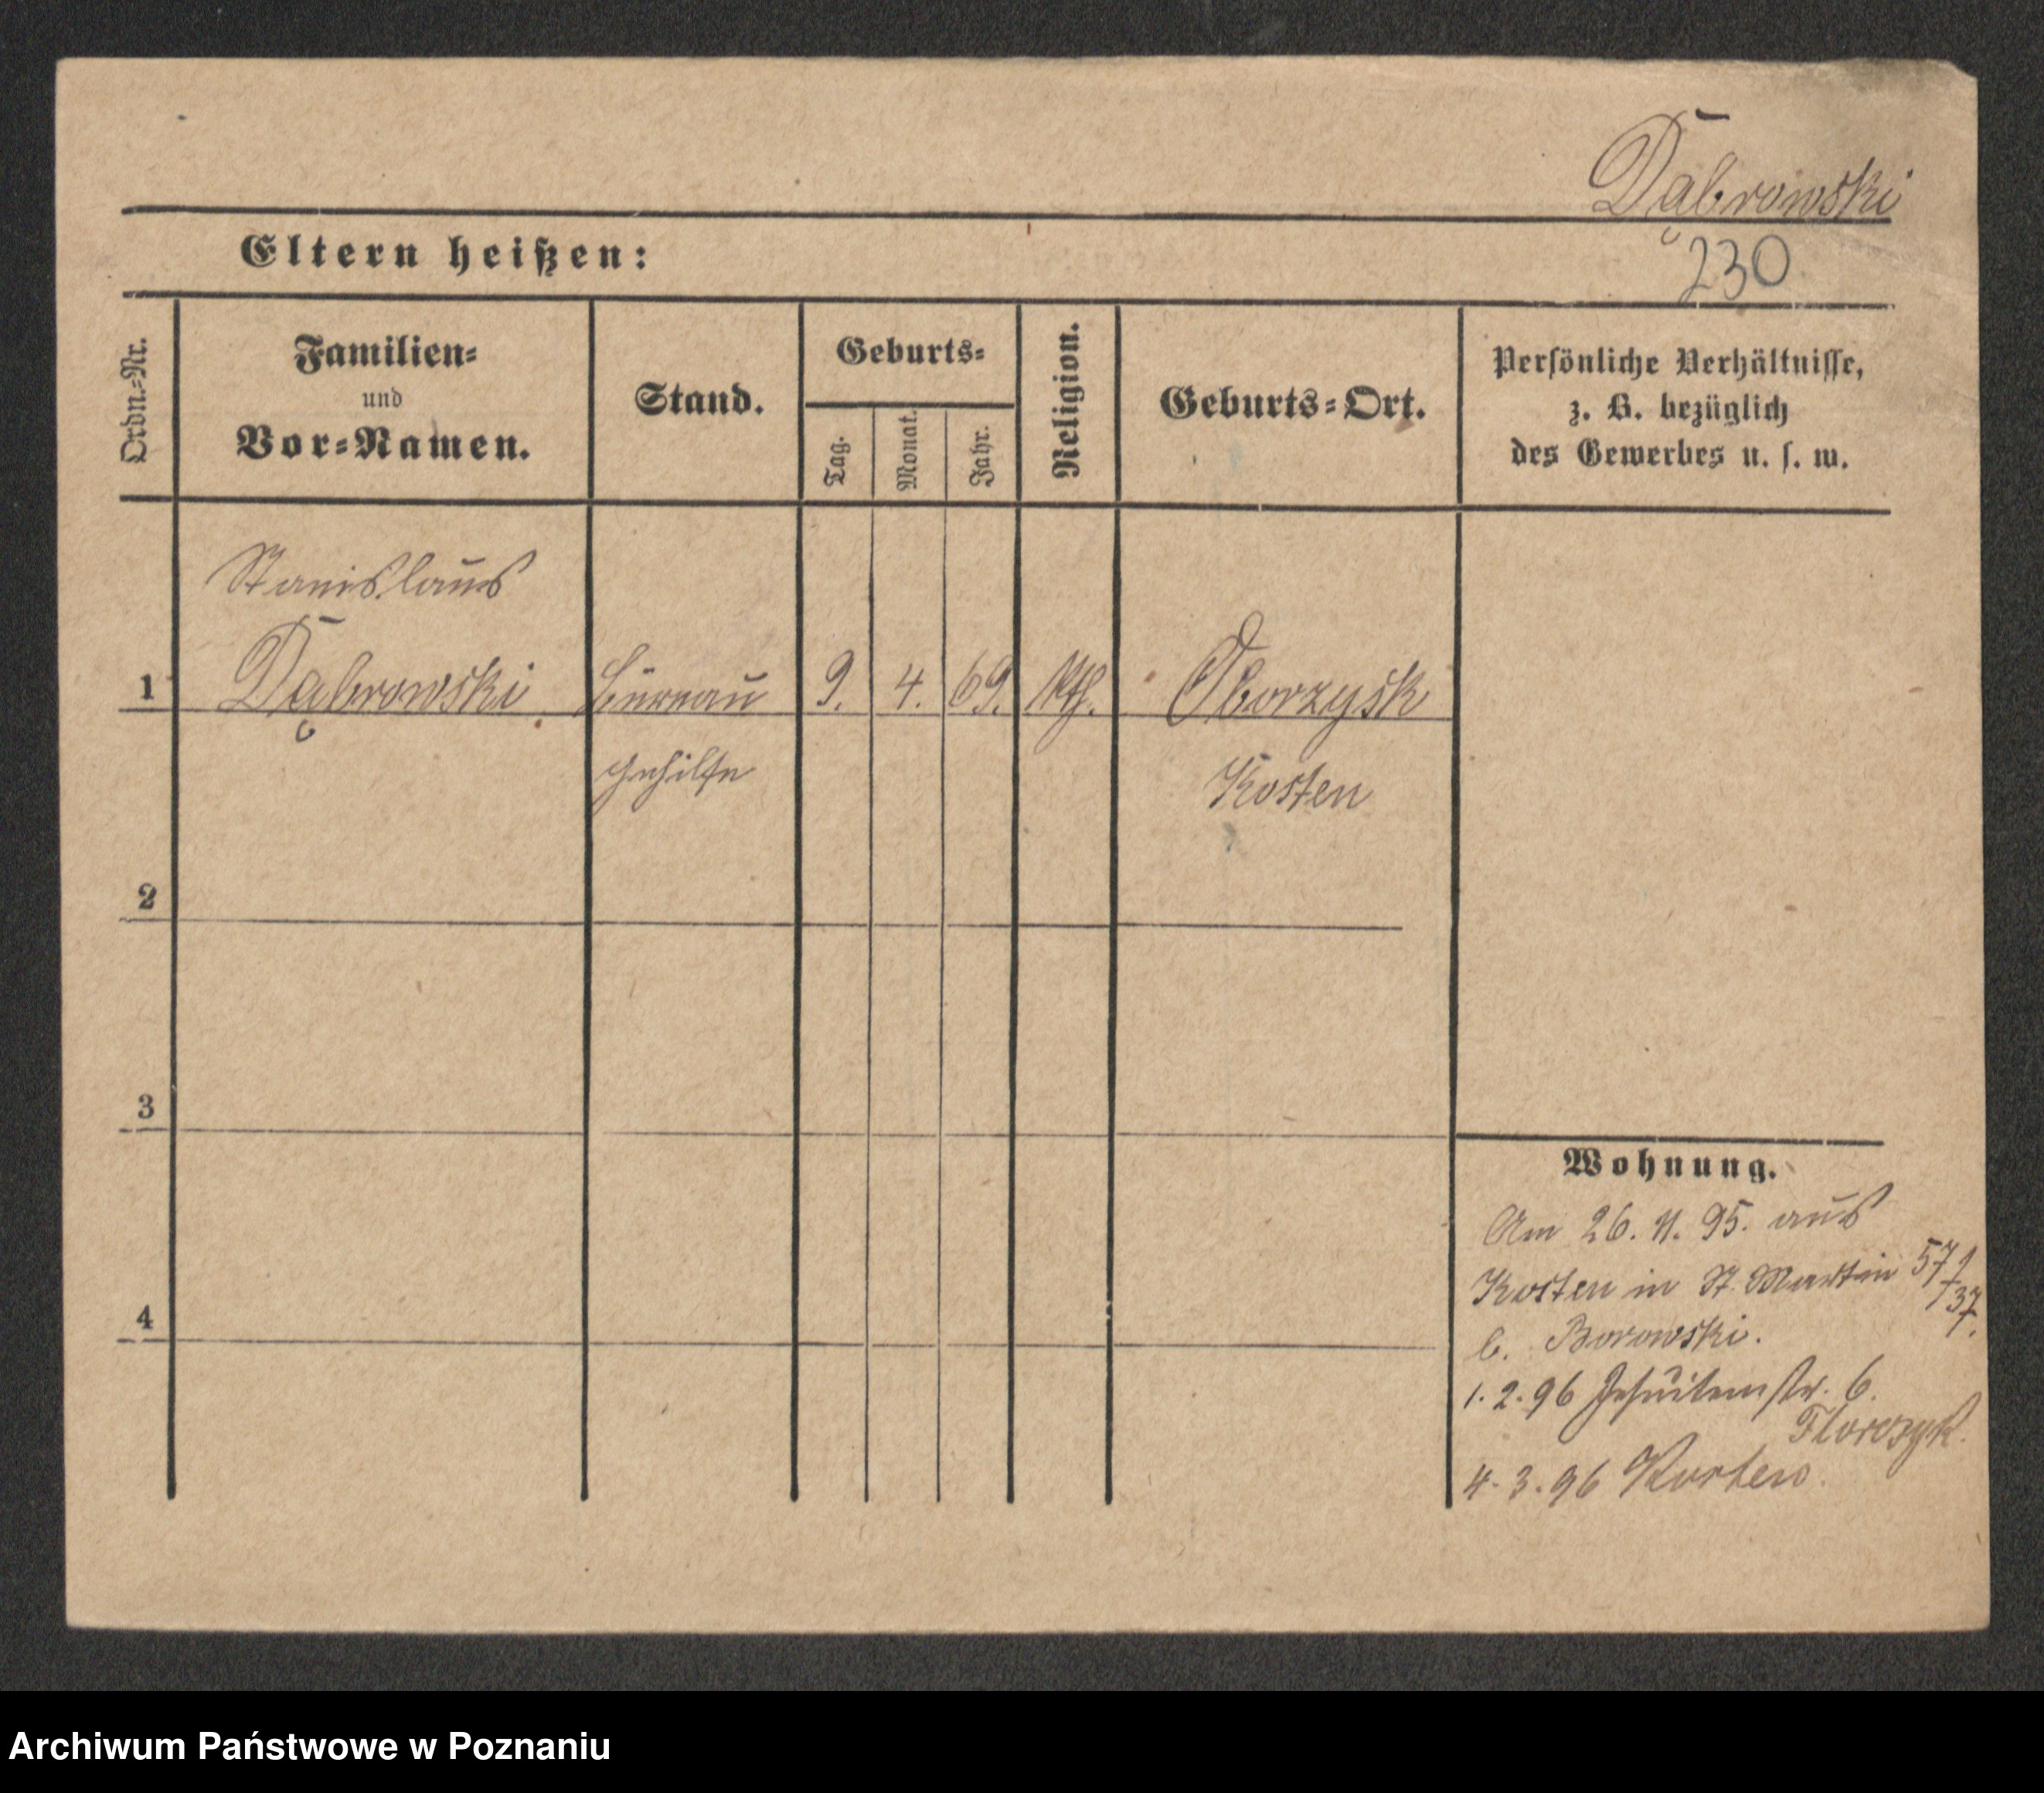 Dąbrowski
Eltern heißen:
230
Ordn.-Nr.
Familien-
und
Vor-Namen.
Stand.
Geburts-
Tag.
Monat.
Jahr.
Religion.
Geburts-Ort.
Persönliche Verhältnisse,
z. B. bezüglich
des Gewerbes u. s. w.
Stanislaus
1 Dąbrowski Büreau 9. 4. 69. Kth. Oborzysk
gehilfe Kosten
2
3
4
Wohnung.
Am 26. 11. 95. aus
Kosten in St. Martin 57/37.
b. Borowski.
1. 2. 96 Jesuitenstr. 6.
Florczyk.
4. 3. 96 Kosten.
Archiwum Państwowe w Poznaniu